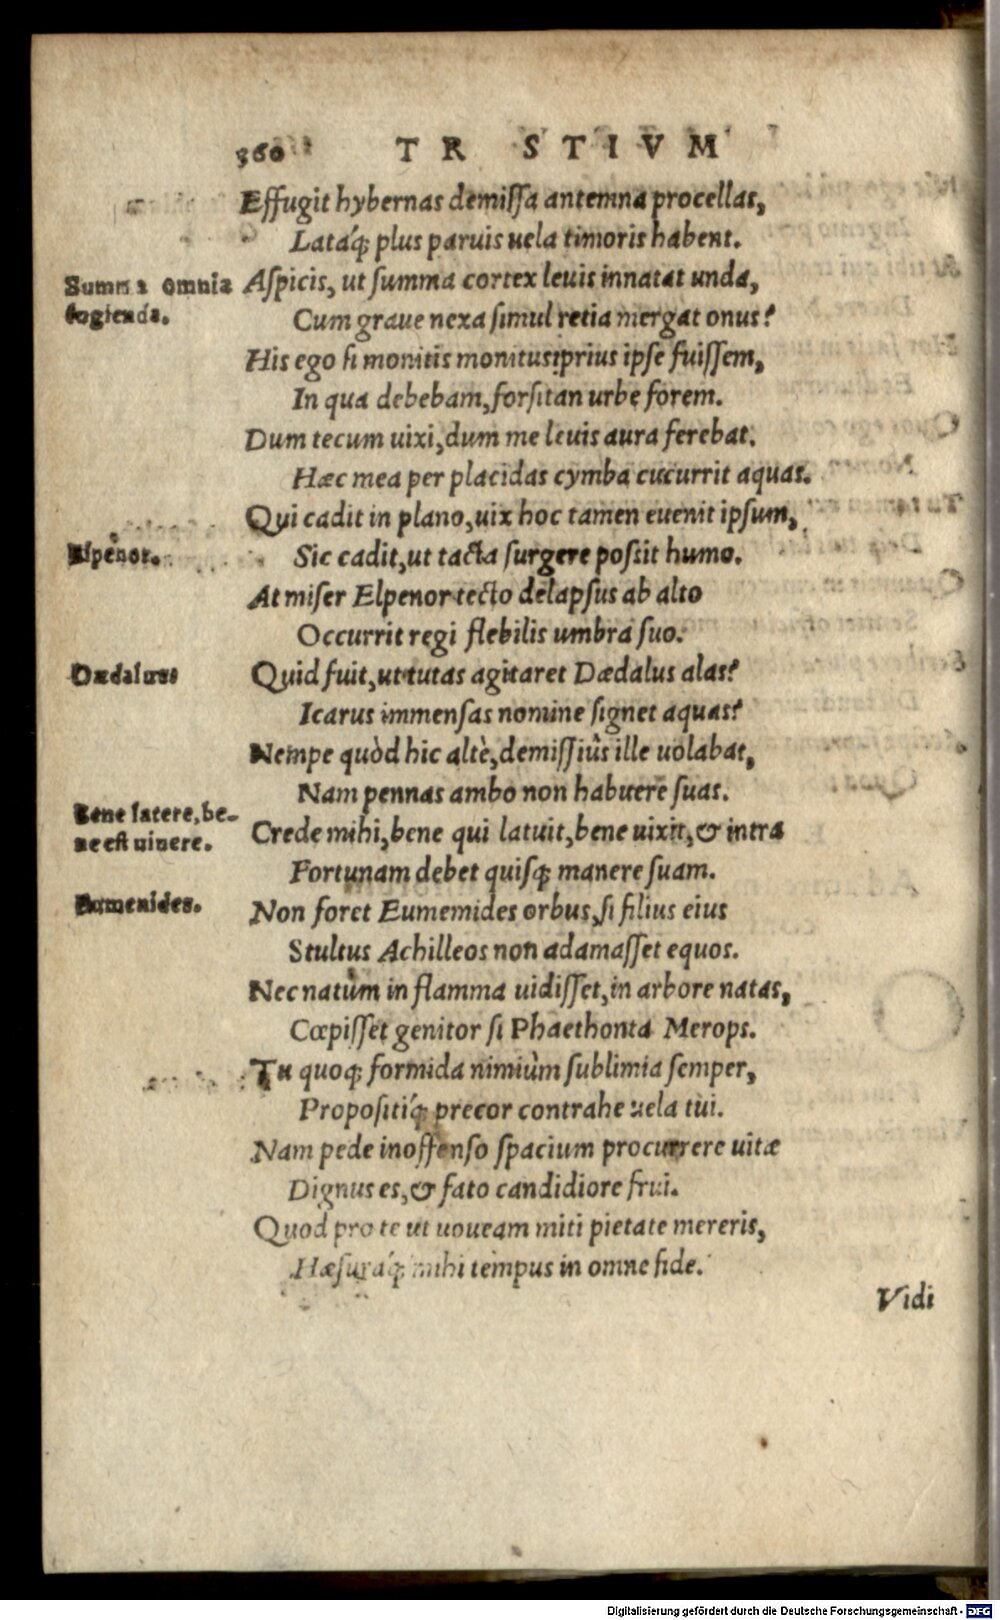 360 TR STIVM
Effugit hybernas demissa antemna procellas,
Latáq; plus paruis uela timoris habent.
Summa omnia
fugienda.
Aspicis, ut summa cortex leuis innatat unda,
Cum graue nexa simul retia mergat onus?
His ego si monitis monitus prius ipse fuissem,
In qua debebam, forsitan urbe forem.
Dum tecum uixi, dum me leuis aura ferebat.
Hæc mea per placidas cymba cucurrit aquas.
Qui cadit in plano, uix hoc tamen euenit ipsum,
Elpenor.
Sic cadit, ut tacta surgere possit humo.
At miser Elpenor tecto delapsus ab alto
Occurrit regi flebilis umbra suo.
Dædalus
Quid fuit, ut tutas agitaret Dædalus alas?
Icarus immensas nomine signet aquas?
Nempe quòd hic altè, demissiùs ille uolabat,
Nam pennas ambo non habuere suas.
Bene latere, be-
ne est uiuere.
Crede mihi, bene qui latuit, bene uixit, & intra
Fortunam debet quisq; manere suam.
Eumenides.
Non foret Eumemides orbus, si filius eius
Stultus Achilleos non adamasset equos.
Nec natum in flamma uidisset, in arbore natas,
Cœpisset genitor si Phaethonta Merops.
Tu quoq; formida nimiùm sublimia semper,
Propositiq́; precor contrahe uela tui.
Nam pede inoffenso spacium procurrere uitæ
Dignus es, & fato candidiore frui.
Quod pro te ut uoueam miti pietate mereris,
Hæsuráq; mihi tempus in omne fide.
Vidi
Digitalisierung gefördert durch die Deutsche Forschungsgemeinschaft - DFG